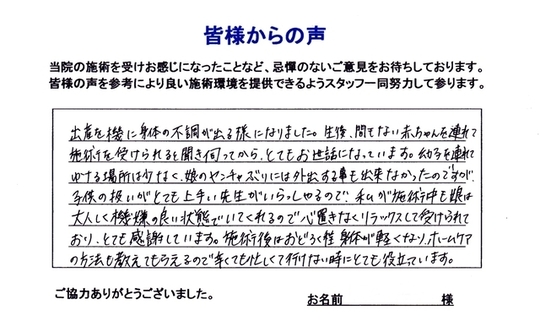 皆様からの声
当院の施術を受けお感じになったことなど、忌憚のないご意見をお待ちしております。
皆様の声を参考により良い施術環境を提供できるようスタッフ一同努力して参ります。
出産を機に身体の不調が出る様になりました。生後、間もない赤ちゃんを連れて
施術を受けられると聞き伺ってから、とてもお世話になっています。幼子を連れて
ゆける場所は少なく、娘のヤンチャぶりには外出する事も出来なかったのですが、
子供の扱いがとても上手い先生がいらっしゃるので、私が施術中も娘は
大人しく機嫌の良い状態でいてくれるので心置きなくリラックスして受けられて
おり、とても感謝しています。施術後はおどろく程身体が軽くなり、ホームケア
の方法も教えてもらえるので辛くても忙しくて行けない時にとても役立ています。
ご協力ありがとうございました。
お名前 様